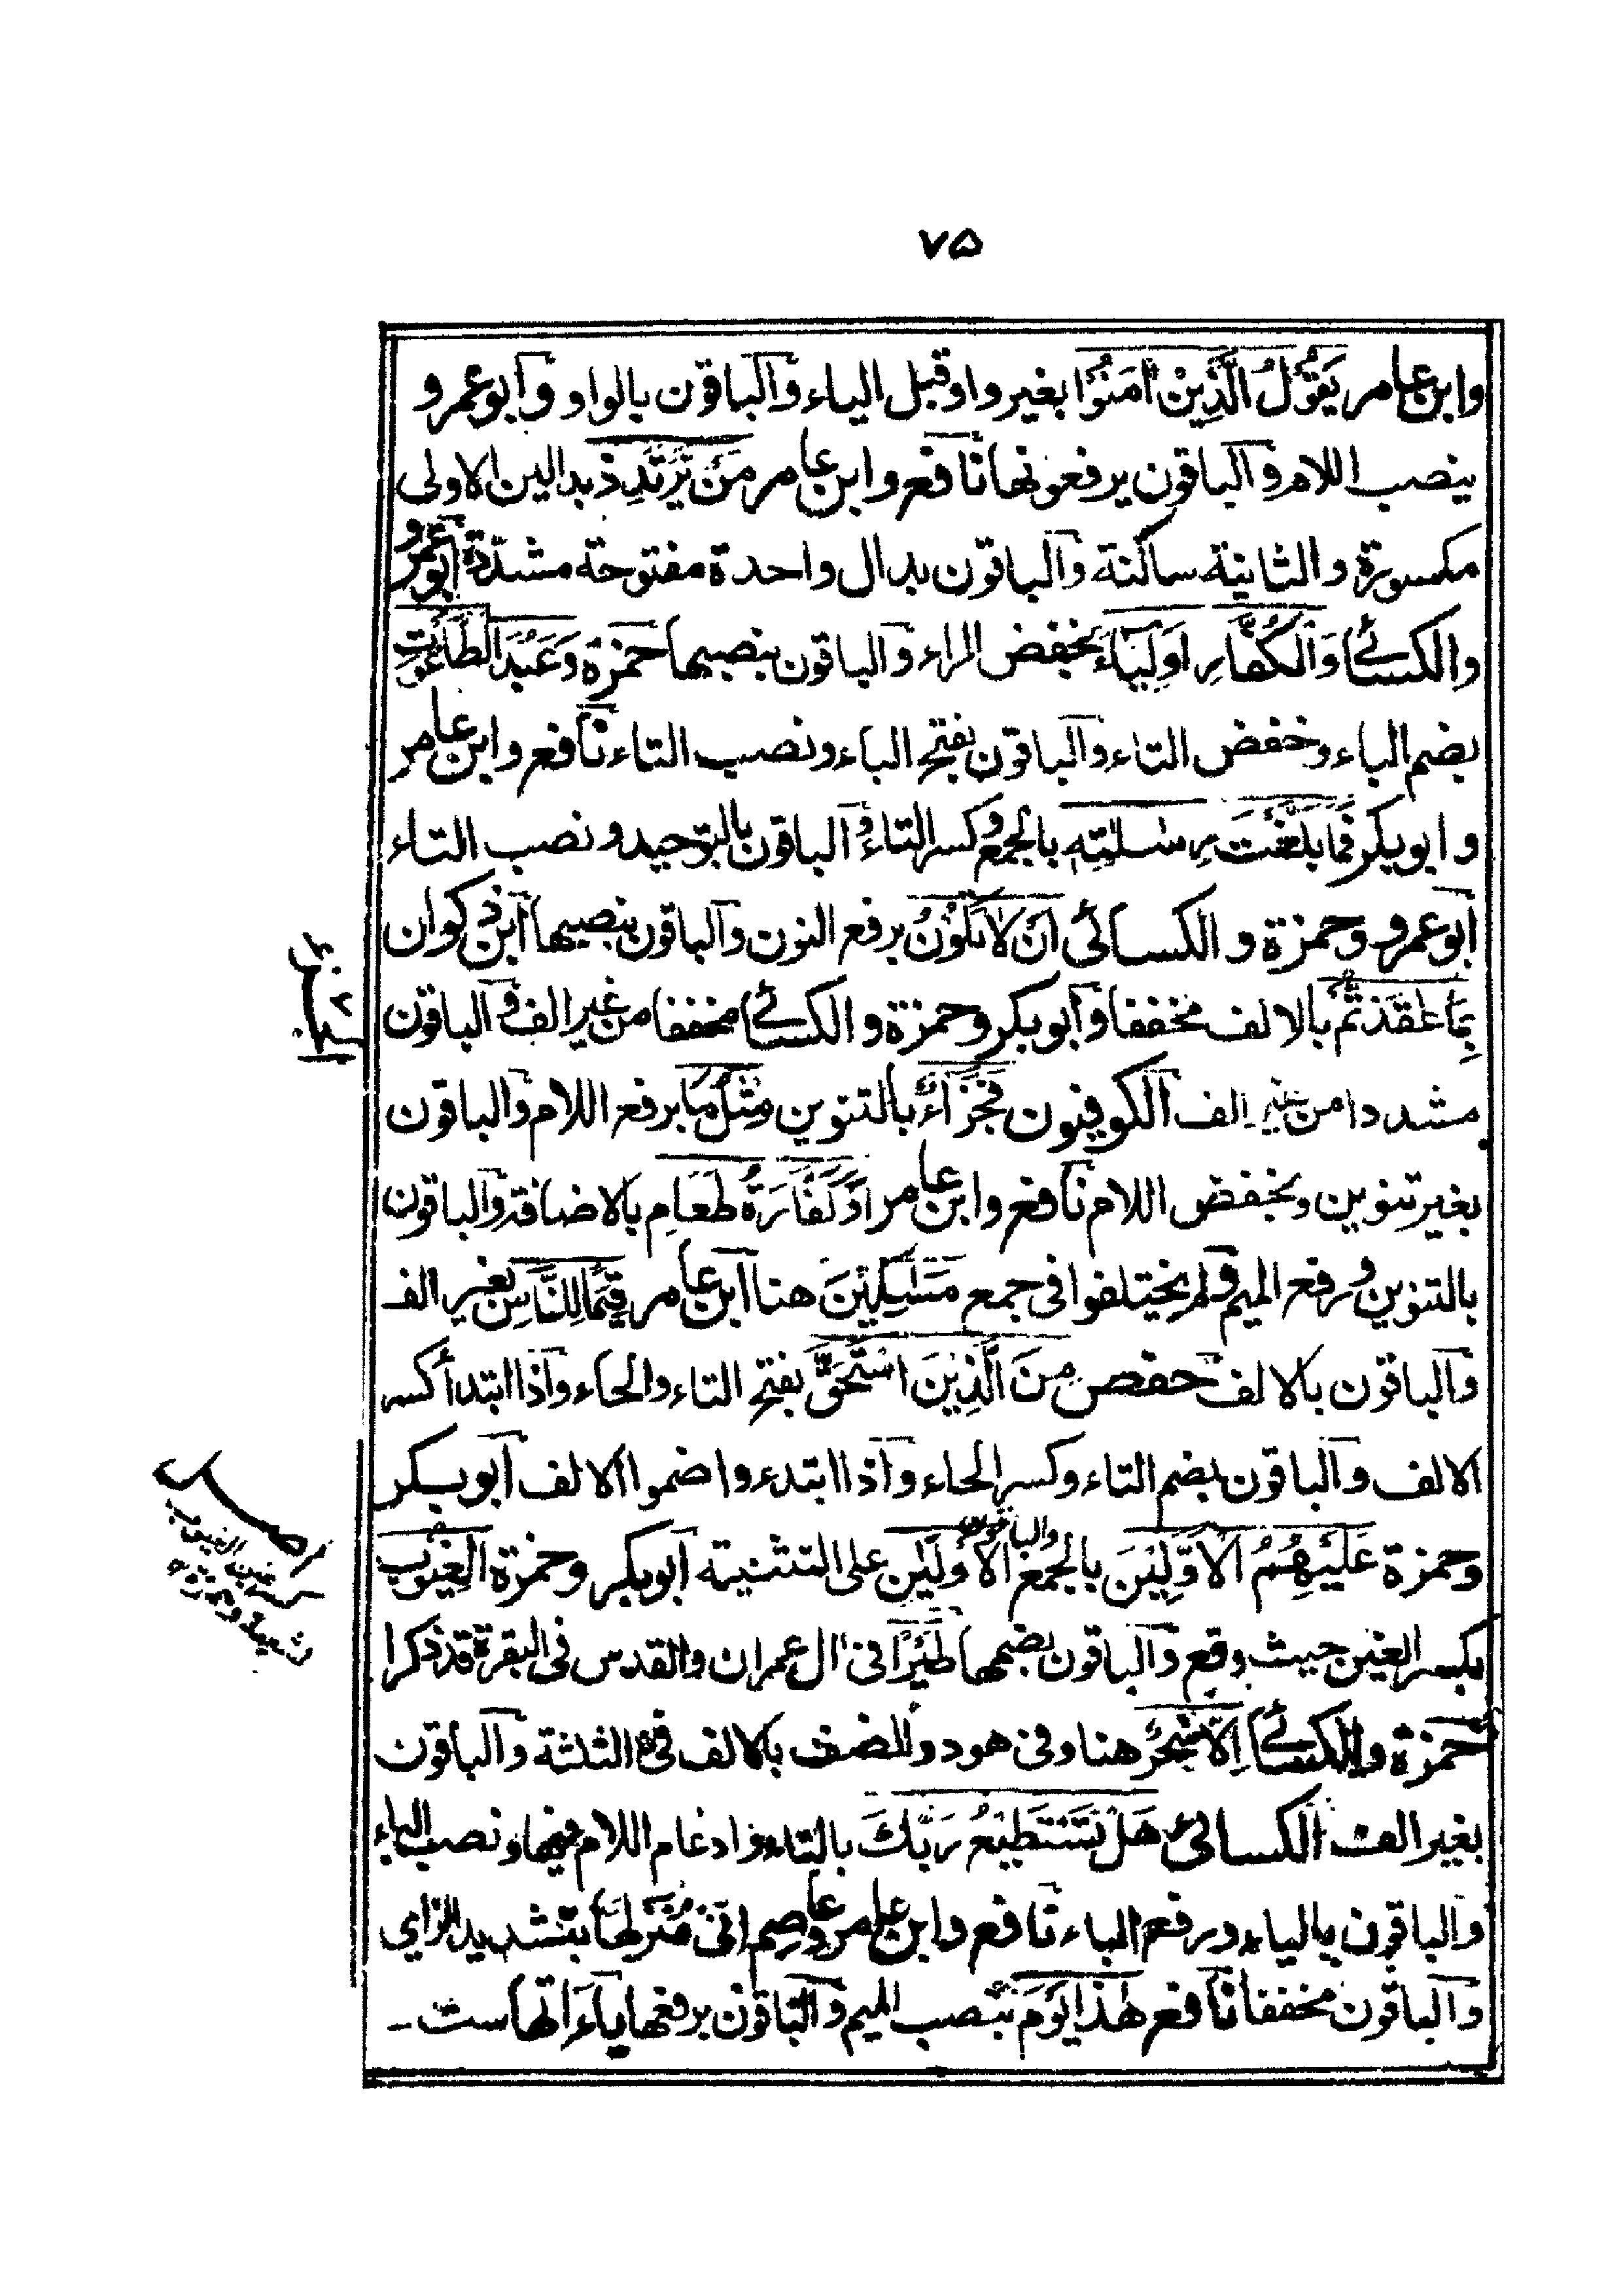 ٧۵
وابن عامر يَقُوْلُ الَّذِيْنَ اٰمَنُوْا بغير واو قبل الياء والباقون بالواو وابو عمرو
بنصب اللام والباقون يرفعونها نافع وابن عامر مَنْ يَّرْتَدِدْ بدالين الاولى
مكسورة والثانية ساكنة والباقون بدال واحدة مفتوحة مشددة ابو عمرو
والكسائے وَالْكُفَّارِ اَوْلِيَاءَ بخفض الراء والباقون بنصبها حمزة وَعَبُدَ الطَّاغُوْتِ
بضم الباء وخفض التاء والباقون بفتح الباء ونصب التاء نافع وابن عامر
وابوبكر فَمَا بَلَّغْتَ رِسٰلٰتِهٖ بالجمع وكسر التاء والباقون بالتوحيد ونصب التاء
ابو عمرو وحمزة والكسائى اَنْ لَا تَكُوْنُ برفع النون والباقون بنصبها ابن ذكوان
بِمَا عٰقَدْتُّمْ بالالف مخففا وابوبكر وحمزة والكسائے مخففا من غير الف والباقون
مشددا من غير الف الكوفيون فَجَزَآءٌ بالتنوين مِثْلُ مَا برفع اللام والباقون
بغير تنوين وبخفض اللام نافع وابن عامر اَوْ كَفَّارَةُ طَعَامِ بالاضافة والباقون
بالتنوين ورفع الميم ولم يختلفوا فى جمع مَسٰكِيْنَ هنا ابن عامر قِيَمًا لِلنَّاسِ بغير الف
والباقون بالالف حفص مِنَ الَّذِيْنَ اسْتَحَقَّ بفتح التاء والحاء واذا ابتدأ كسر
الالف والباقون بضم التاء وكسر الحاء واذا ابتدءوا ضموا الالف ابوبكر
وحمزة عَلَيْهِمُ الْاَوَّلِيْنَ بالجمع والباقون الْاَوْلَيٰنِ على التثنية ابوبكر وحمزة الْغِيُوْبِ
بكسر الغين حيث وقع والباقون بضمها طَيْرًا فى اٰل عمران والقدس فى البقرة قد ذكرا
حمزة والكسائے اِلَّا سٰحِرٌ هنا وفى هود والصف بالالف فى الثلثة والباقون
بغير الف الكسائى هَلْ تَسْتَطِيْعُ رَبَّكَ بالتاء وادغام اللام فيها ونصب الباء
والباقون بالياء ورفع الباء نافع وابن عامر وعاصم انى مُنَزِّلُهَا بتشديد الزاي
والباقون مخففا نافع هٰذَا يَوْمَ بنصب الميم والباقون برفعها ياءَاتها ست ـ